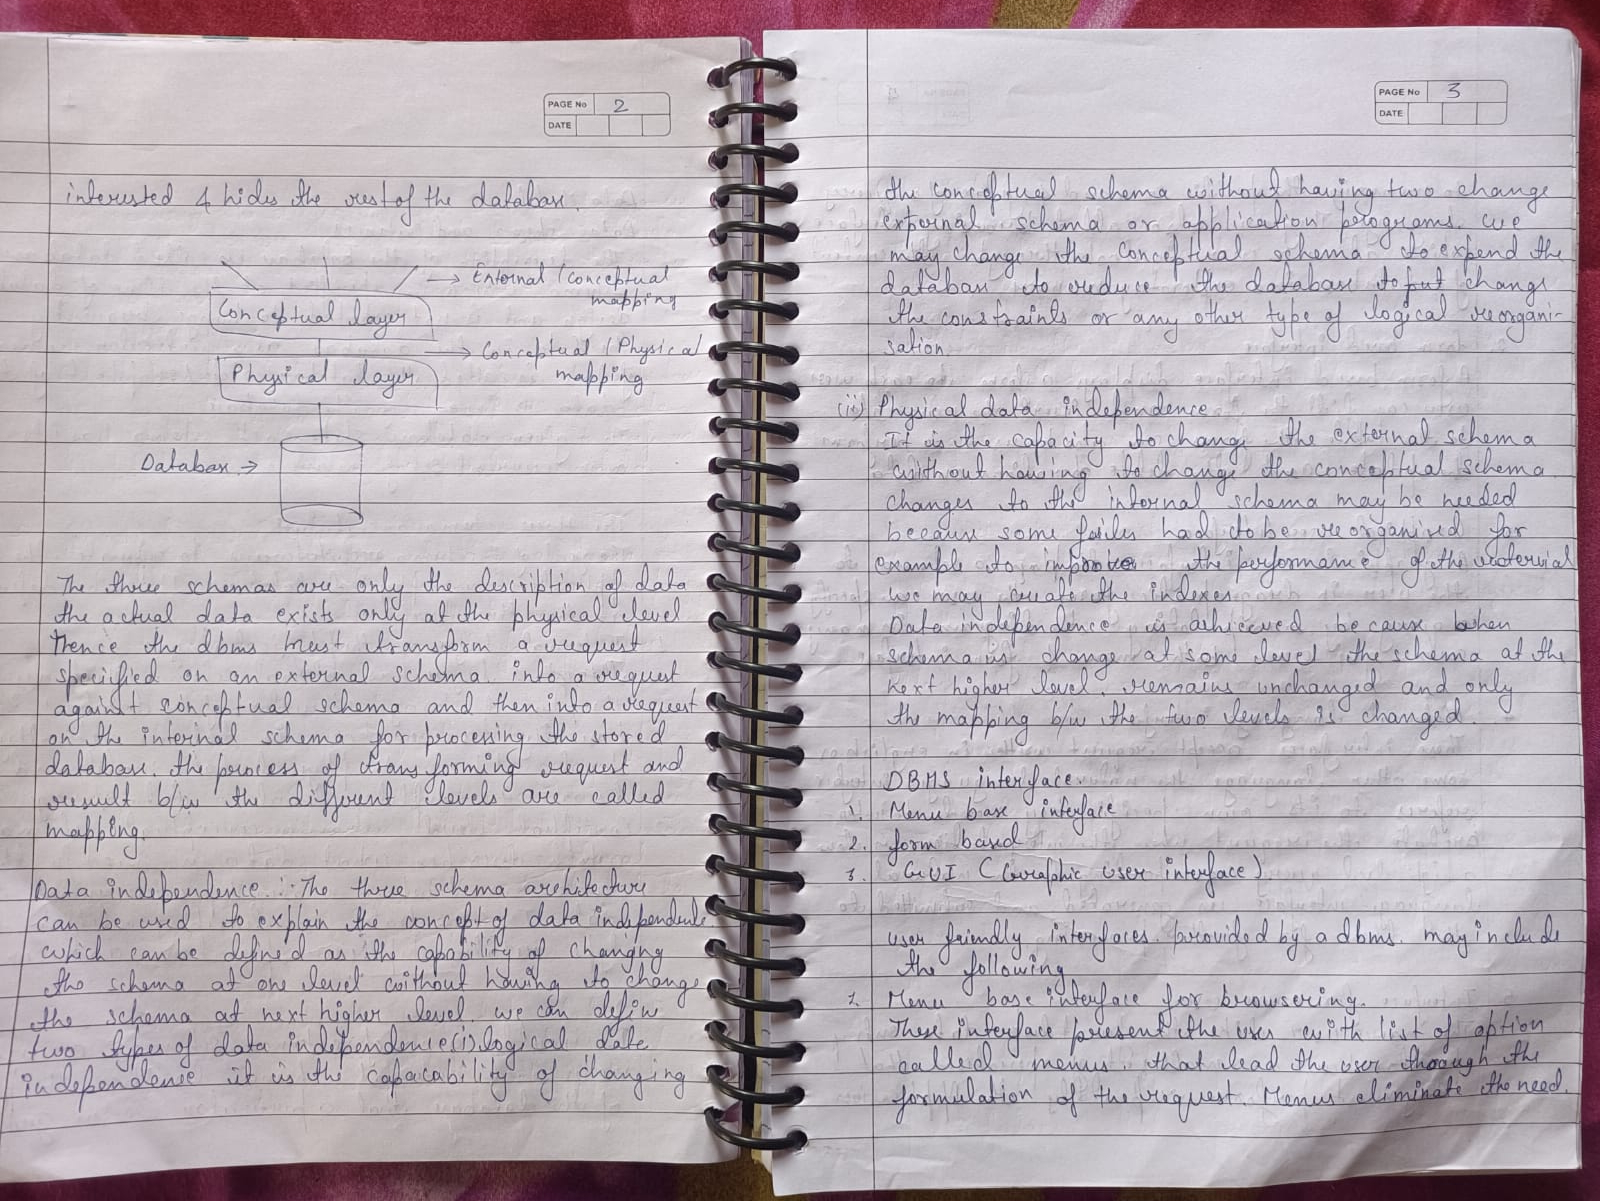 PAGE No 2
DATE
interested & hides the rest of the database.
→ External / conceptual
mapping
Conceptual layer
→ Conceptual / Physical
mapping
Physical layer
Database →
The three schemas are only the description of data
the actual data exists only at the physical level
Hence the dbms must transform a request
specified on an external schema into a request
against conceptual schema and then into a request
on the internal schema for processing the stored
database. the process of transforming request and
result b/w the different levels are called
mapping.
Data independence :- The three schema architecture
can be used to explain the concept of data independence
which can be defined as the capability of changing
the schema at one level without having to change
the schema at next higher level. we can define
two types of data independence (i) logical date
independence it is the capacability of changing
PAGE No 3
DATE
the conceptual schema without having two change
expernal schema or application programs. we
may change the conceptual schema to expend the
database to reduce the database to put change
the constraints or any other type of logical reorgani-
sation
(ii) Physical data independence
It is the capacity to change the external schema
without having to change the conceptual schema
changes to the internal schema may be needed
because some failes had to be reorganised for
example to improve the performance of the
we may create the indexes
Data independence is achieved because when
schema is change at some level the schema at the
next higher level, remains unchanged and only
the mapping b/w the two levels is changed.
DBMS interface.
1. Menu base interface
2. form based
3. GUI (Graphic user interface)
user friendly interfaces provided by a dbms may include
the following
1. Menu base interface for browsering.
These interface present the user with list of option
called menus that lead the user through the
formulation of the request. Menus eliminate the need.